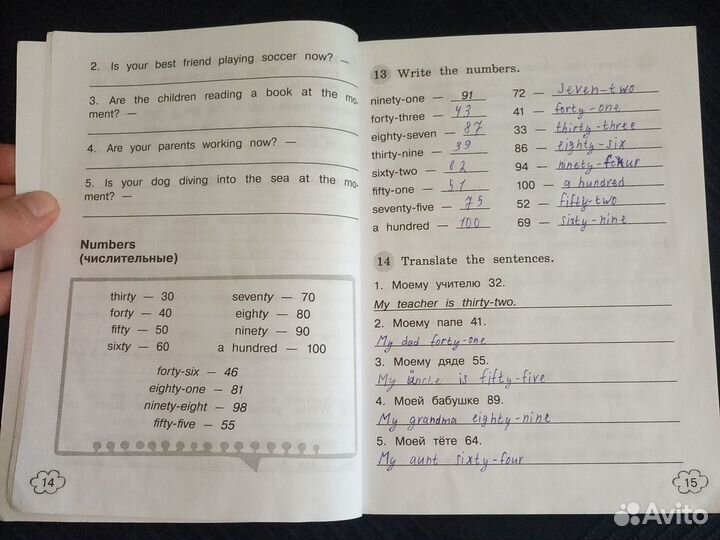 2. Is your best friend playing soccer now? —
3. Are the children reading a book at the mo-
ment? —
4. Are your parents working now? —
5. Is your dog diving into the sea at the mo-
ment? —
Numbers
(числительные)
thirty — 30
forty — 40
fifty — 50
sixty — 60
seventy — 70
eighty — 80
ninety — 90
a hundred — 100
forty-six — 46
eighty-one — 81
ninety-eight — 98
fifty-five — 55
14
13 Write the numbers.
ninety-one — 91
forty-three — 43
eighty-seven — 87
thirty-nine — 39
sixty-two — 62
fifty-one — 51
seventy-five — 75
a hundred — 100
72 — seven-two
41 — forty-one
33 — thirty-three
86 — eighty-six
94 — ninety-four
100 — a hundred
52 — fifty-two
69 — sixty-nine
14 Translate the sentences.
1. Моему учителю 32.
My teacher is thirty-two.
2. Моему папе 41.
My dad forty-one
3. Моему дяде 55.
My uncle is fifty-five
4. Моей бабушке 89.
My grandma eighty-nine
5. Моей тёте 64.
My aunt sixty-four
15
Avito